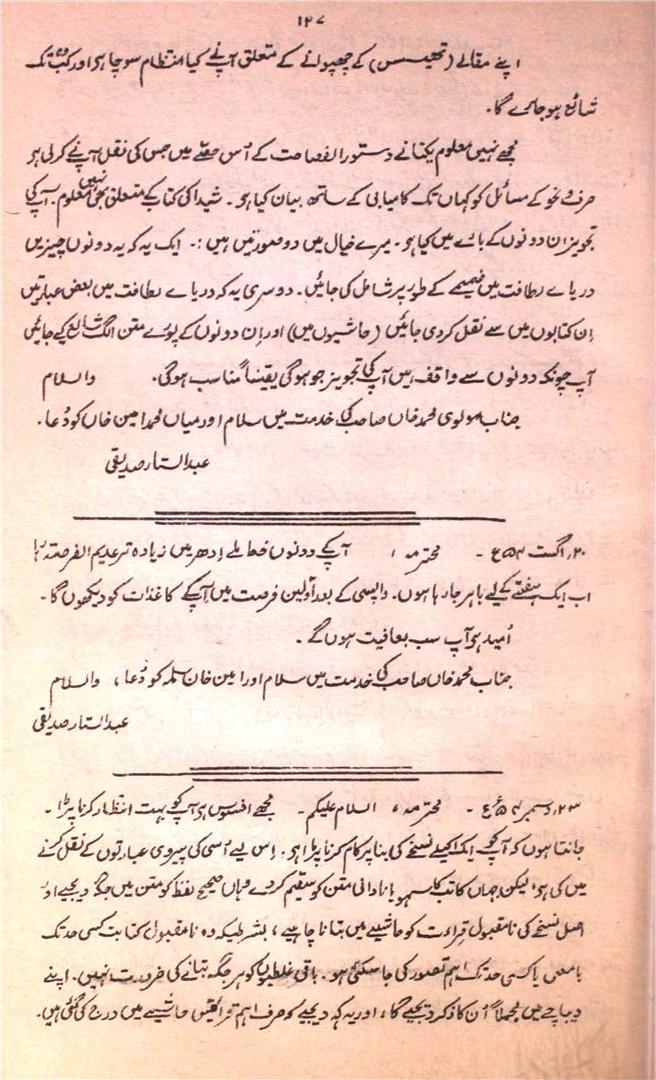 ۱۲۷
اپنے مقالے (تھیسس) کے چھپوانے کے متعلق آپنے کیا انتظام سوچا ہی اور کب تک
شائع ہو جائے گا۔
مجھے نہیں معلوم یکتا نے دستور الفصاحت کے اُس حصّے میں جس کی نقل آپنے کرلی ہی
صرف و نحو کے مسائل کو کہاں تک کامیابی کے ساتھ بیان کیا ہی۔ شیدا کی کتاب کے متعلق بھی نہیں معلوم۔ آپ کی
تجویز ان دونوں کے بارے میں کیا ہی۔ میرے خیال میں دو صورتیں ہیں :۔ ایک یہ کہ یہ دونوں چیزیں
دریاے لطافت میں ضمیمے کے طور پر شامل کی جائیں۔ دوسری یہ کہ دریاے لطافت میں بعض عبارتیں
اِن کتابوں میں سے نقل کردی جائیں (حاشیوں میں) اور اِن دونوں کے پورے متن الگ شائع کیے جائیں
آپ چونکہ دونوں سے واقف ہیں آپ کی تجویز جو ہوگی یقیناً مناسب ہوگی۔ والسلام
جناب مولوی محمد خاں صاحب کی خدمت میں سلام اور میاں محمد امین خاں کو دُعا۔
عبدالستار صدیقی
۲۰؍ اگست ۵۴ع ۔ محترمہ ، آپکے دونوں خط ملے اِدھر میں زیادہ تر عدیم الفرصت رہا
اب ایک ہفتے کے لیے باہر جا رہا ہوں۔ واپسی کے بعد اُولین فرصت میں آپ کے کاغذات کو دیکھوں گا۔
اُمید ہی آپ سب بعافیت ہوں گے۔
جناب محمد خاں صاحب کی خدمت میں سلام اور امین خان سلمہ کو دُعا ، والسلام
عبدالستار صدیقی
۲۳؍ دسمبر ۵۴ع ۔ محترمہ ، السلام علیکم۔ مجھے افسوس ہی آپ کو بہت انتظار کرنا پڑا۔
جانتا ہوں کہ آپ کو ایک اکیلے نسخے کی بنا پر کام کرنا پڑا ہی۔ اِس لیے اُسی کی پیروی عبارتوں کے نقل کرنے
میں کی ہی لیکن جہاں کاتب کا سہو یا نادانی متن کو سقیم کر دے وہاں صحیح لفظ کو متن میں جگہ دیجیے اور
اصل نسخے کی نامقبول قراءت کو حاشیے میں بتانا چاہیے ، بشرطیکہ وہ نامقبول کتابت کسی حد تک
بامعنی یا کسی حد تک اہم تصور کی جا سکتی ہو۔ باقی غلطیوں کو ہر جگہ بتانے کی ضرورت نہیں۔ اپنے
دیباچے میں مجملاً اُن کا ذکر کر دیجیے گا ، اور یہ کہہ دیجیے کہ صرف اہم قرائتیں حاشیے میں درج کی گئی ہیں۔